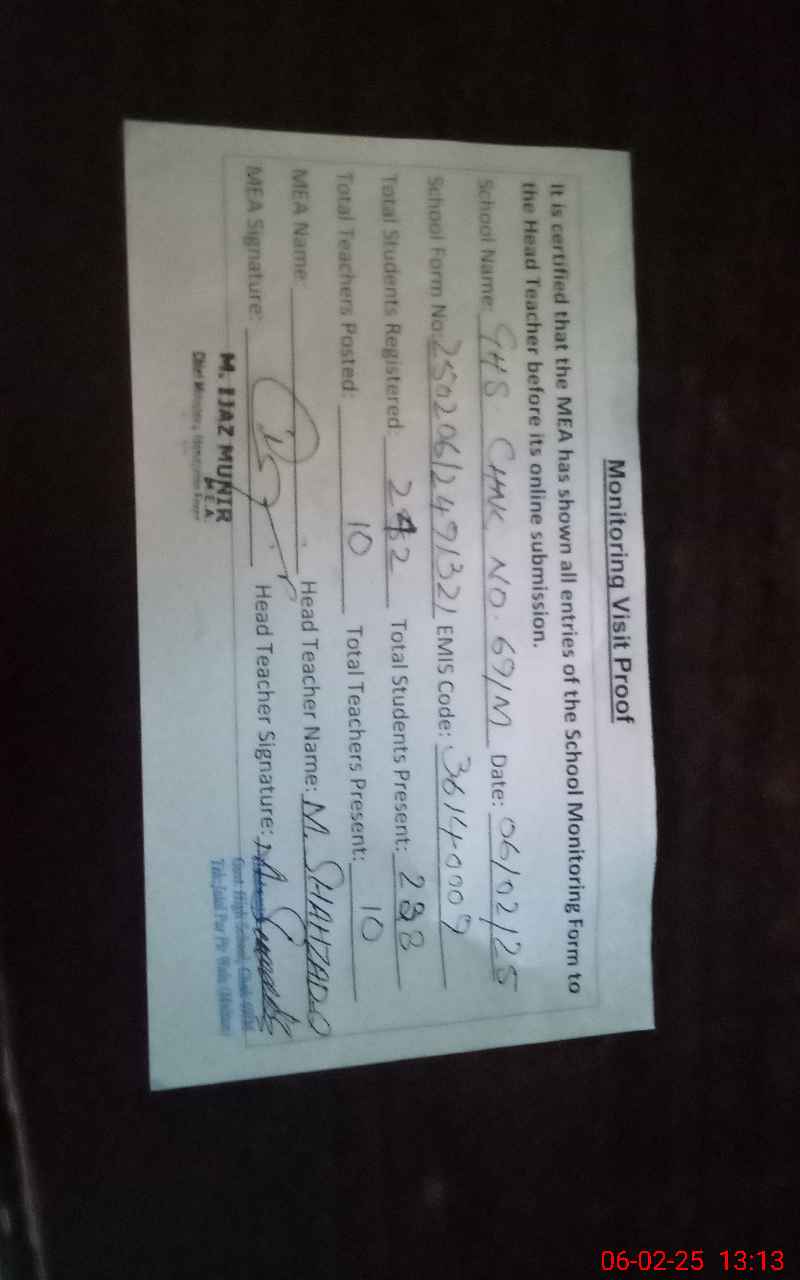 Monitoring Visit Proof
It is certified that the MEA has shown all entries of the School Monitoring Form to
the Head Teacher before its online submission.
School Name: GHS CHAK NO. 69/M Date: 06/02/25
School Form No: 25020612491321 EMIS Code: 36140009
Total Students Registered: 242 Total Students Present: 238
Total Teachers Posted: 10 Total Teachers Present: 10
MEA Name: Head Teacher Name: M. SHAHZAD
MEA Signature: Head Teacher Signature:
M. IJAZ MUNIR
M.E.A.
Govt. High School, Chak
Teh: Jalal Pur Pir Wala (Multan)
06-02-25 13:13